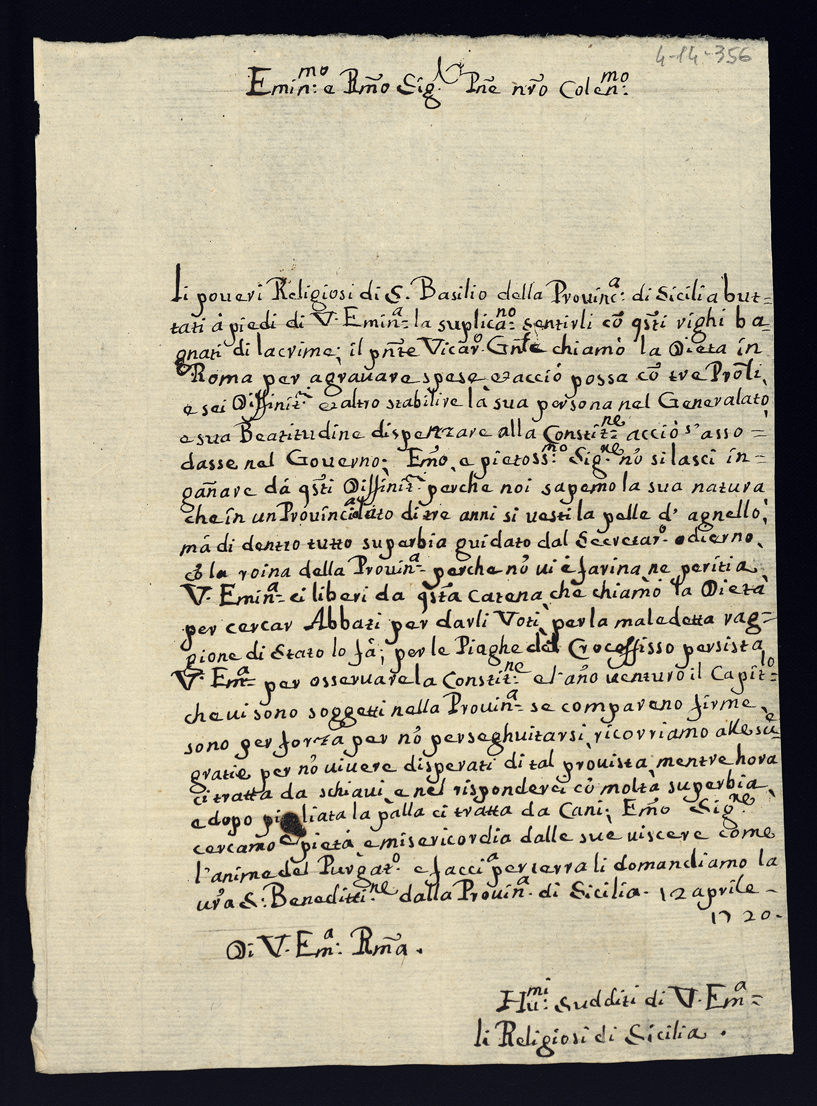 4-14-356
Emin:mo e Rm̃o Sig.r Prñe nr̃o Colen:mo
li poueri Religiosi di S. Basilio della Prouinc:a di Sicilia but=
tati à piedi di V. Emin:a la suplica:no sentirli cõ qsti righi ba=
gnati di lacrime; il pnte Vicar.o Gnle chiamò la Dieta in
Roma per agrauare spese et acciò possa cõ tre Prõli,
e sei Diffinit:ri et altro stabilire la sua persona nel Generalato
e sua Beatitudine dispenzare alla Constit:ne acciò s'asso=
dasse nel Governo; Em̃o, e pietoss:mo Sig:re nõ si lasci in=
gañare dà qsti Diffinit:ri perche noi sapemo la sua natura
che in un Prouincialato di tre anni si uesti la pelle d'agnello,
mà di dentro tutto superbia guidato dal Secretar:o odierno,
cõ la roina della Prouin:a perche nõ ui è farina, ne peritia
V. Emin:a ci liberi da qsta catena che chiamò la Dieta
per cercar Abbati per darli Voti, per la maledetta rag=
gione di Stato lo fà; per le Piaghe del Crocefisso persista
V. Em:a per osseruare la Constit:ne e l'año uenturo il Capit:lo
che ui sono soggetti nella Prouin:a se compareno firme,
sono per forza per nõ perseghuitarsi, ricorriamo alle sue
gratie per nõ uiuere disperati di tal prouista, mentre hora
ci tratta da schiaui, e nel risponderci cõ molta superbia,
e dopo pigliata la palla ci tratta da Cani; Em̃o Sig:re
cercamo pietà e misericordia dalle sue uiscere come
l'anime del Purgat:o e facci:a per terra li domandiamo la
ur̃a S: Beneditti:ne dalla Prouin:a di Sicilia. 12 aprile -
1720.
Di V. Em:a Rm̃a.
Hu:mi Sudditi di V. Em:a=
li Religiosi di Sicilia.